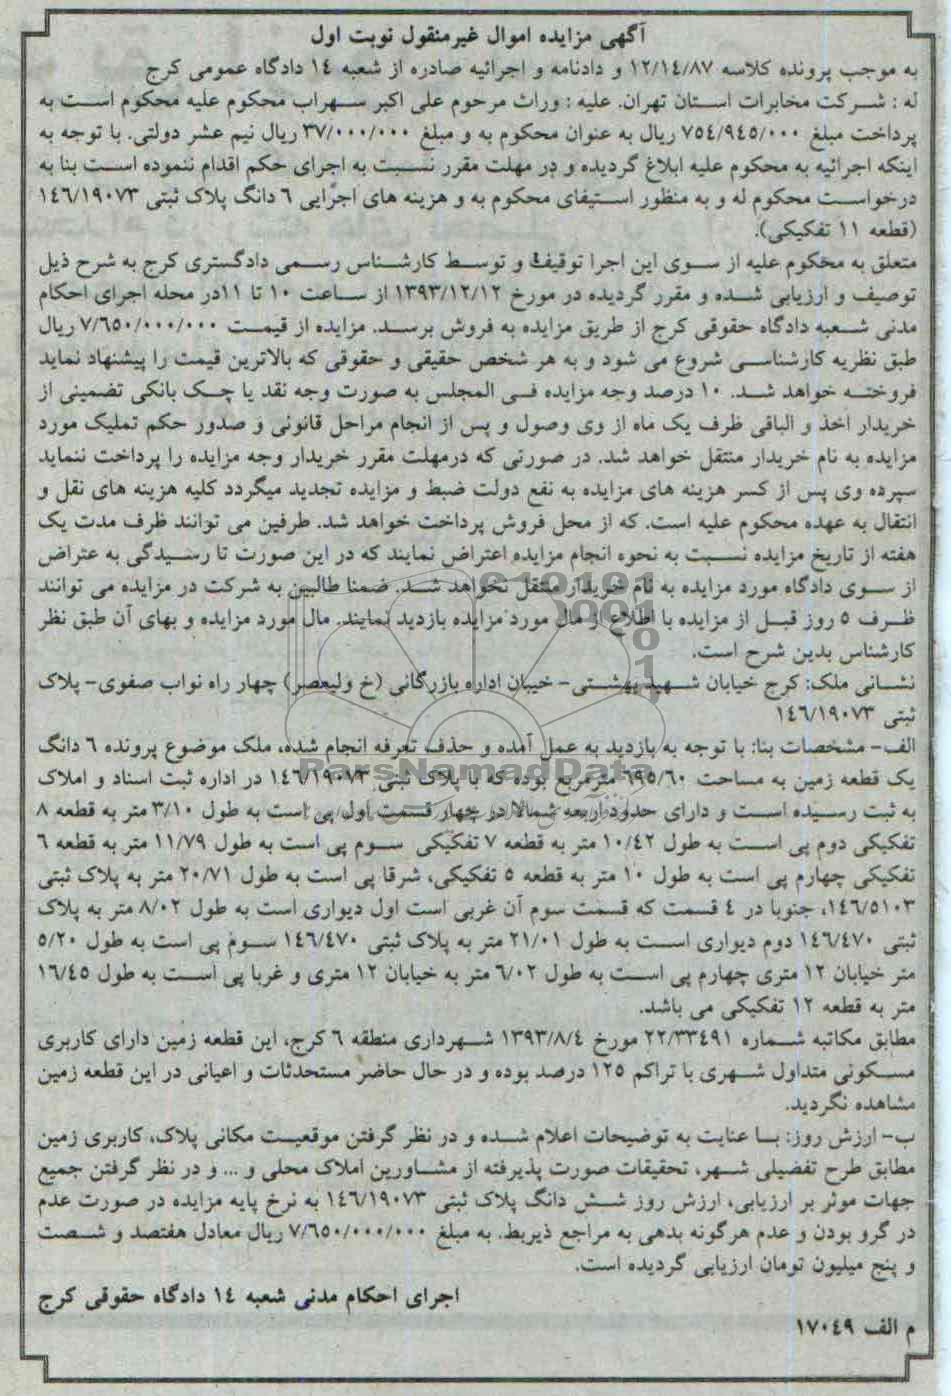 آگهی مزایده اموال غیرمنقول نوبت اول
به موجب پرونده کلاسه ۱۲/۱۴/۸۷ و دادنامه و اجرائیه صادره از شعبه ۱٤ دادگاه عمومی کرج
له : شرکت مخابرات استان تهران. علیه : وراث مرحوم علی اکبر سهراب محکوم علیه محکوم است به
پرداخت مبلغ ۷۵٤/۹٤۵/۰۰۰ ریال به عنوان محکوم به و مبلغ ۳۷/۰۰۰/۰۰۰ ریال نیم عشر دولتی. با توجه به
اینکه اجرائیه به محکوم علیه ابلاغ گردیده و در مهلت مقرر نسبت به اجرای حکم اقدام ننموده است بنا به
درخواست محکوم له و به منظور استیفای محکوم به و هزینه های اجرایی ٦ دانگ پلاک ثبتی ۱٤٦/۱۹۰۷۳
(قطعه ۱۱ تفکیکی).
متعلق به محکوم علیه از سوی این اجرا توقیف و توسط کارشناس رسمی دادگستری کرج به شرح ذیل
توصیف و ارزیابی شده و مقرر گردیده در مورخ ۱۳۹۳/۱۲/۱۲ از ساعت ۱۰ تا ۱۱در محله اجرای احکام
مدنی شعبه دادگاه حقوقی کرج از طریق مزایده به فروش برسد. مزایده از قیمت ۷/٦۵۰/۰۰۰/۰۰۰ ریال
طبق نظریه کارشناسی شروع می شود و به هر شخص حقیقی و حقوقی که بالاترین قیمت را پیشنهاد نماید
فروخته خواهد شد. ۱۰ درصد وجه مزایده فی المجلس به صورت وجه نقد یا چک بانکی تضمینی از
خریدار اخذ و الباقی ظرف یک ماه از وی وصول و پس از انجام مراحل قانونی و صدور حکم تملیک مورد
مزایده به نام خریدار منتقل خواهد شد. در صورتی که درمهلت مقرر خریدار وجه مزایده را پرداخت ننماید
سپرده وی پس از کسر هزینه های مزایده به نفع دولت ضبط و مزایده تجدید میگردد کلیه هزینه های نقل و
انتقال به عهده محکوم علیه است. که از محل فروش پرداخت خواهد شد. طرفین می توانند ظرف مدت یک
هفته از تاریخ مزایده نسبت به نحوه انجام مزایده اعتراض نمایند که در این صورت تا رسیدگی به عتراض
از سوی دادگاه مورد مزایده به نام خریدار منتقل نخواهد شد. ضمنا طالبین به شرکت در مزایده می توانند
ظرف ۵ روز قبل از مزایده با اطلاع از مال مورد مزایده بازدید نمایند. مال مورد مزایده و بهای آن طبق نظر
کارشناس بدین شرح است.
نشانی ملک: کرج خیابان شهید بهشتی- خیبان اداره بازرگانی (خ ولیعصر) چهار راه نواب صفوی- پلاک
ثبتی ۱٤٦/۱۹۰۷۳
الف- مشخصات بنا: با توجه به بازدید به عمل آمده و حذف تعرفه انجام شده، ملک موضوع پرونده ٦ دانگ
یک قطعه زمین به مساحت ٦۹۵/٦۰ مترمربع بوده که با پلاک ثبتی ۱٤٦/۱۹۰۷۳ در اداره ثبت اسناد و املاک
به ثبت رسیده است و دارای حدود اربعه شمالا در چهار قسمت اول پی است به طول ۳/۱۰ متر به قطعه ۸
تفکیکی دوم پی است به طول ۱۰/٤۲ متر به قطعه ۷ تفکیکی سوم پی است به طول ۱۱/۷۹ متر به قطعه ٦
تفکیکی چهارم پی است به طول ۱۰ متر به قطعه ۵ تفکیکی، شرقا پی است به طول ۲۰/۷۱ متر به پلاک ثبتی
۱٤٦/۵۱۰۳، جنوبا در ٤ قسمت که قسمت سوم آن غربی است اول دیواری است به طول ۸/۰۲ متر به پلاک
ثبتی ۱٤٦/٤۷۰ دوم دیواری است به طول ۲۱/۰۱ متر به پلاک ثبتی ۱٤٦/٤۷۰ سوم پی است به طول ۵/۲۰
متر خیابان ۱۲ متری چهارم پی است به طول ٦/۰۲ متر به خیابان ۱۲ متری و غربا پی است به طول ۱٦/٤۵
متر به قطعه ۱۲ تفکیکی می باشد.
مطابق مکاتبه شماره ۲۲/۳۳٤۹۱ مورخ ۱۳۹۳/۸/٤ شهرداری منطقه ٦ کرج، این قطعه زمین دارای کاربری
مسکونی متداول شهری با تراکم ۱۲۵ درصد بوده و در حال حاضر مستحدثات و اعیانی در این قطعه زمین
مشاهده نگردید.
ب- ارزش روز: با عنایت به توضیحات اعلام شده و در نظر گرفتن موقعیت مکانی پلاک، کاربری زمین
مطابق طرح تفضیلی شهر، تحقیقات صورت پذیرفته از مشاورین املاک محلی و ... و در نظر گرفتن جمیع
جهات موثر بر ارزیابی، ارزش روز شش دانگ پلاک ثبتی ۱٤٦/۱۹۰۷۳ به نرخ پایه مزایده در صورت عدم
در گرو بودن و عدم هرگونه بدهی به مراجع ذیربط. به مبلغ ۷/٦۵۰/۰۰۰/۰۰۰ ریال معادل هفتصد و شصت
و پنج میلیون تومان ارزیابی گردیده است.
اجرای احکام مدنی شعبه ۱٤ دادگاه حقوقی کرج
م الف ۱۷۰٤۹
ParsNamadData